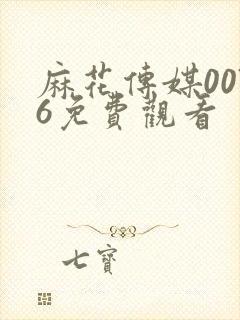 麻花傳媒00
6免費觀看
七寶